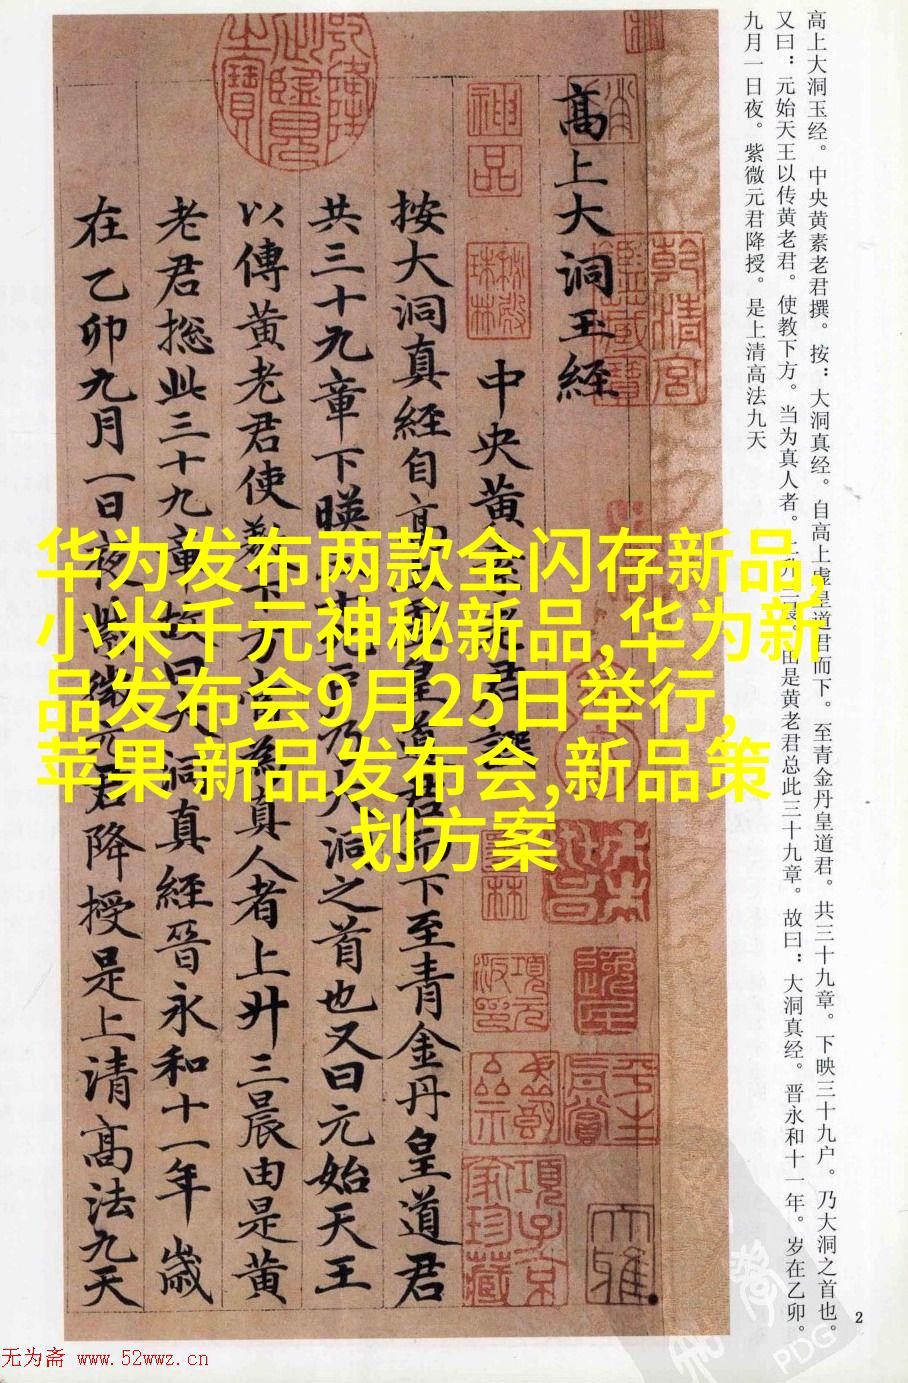 高上大洞玉经。中央黄素老君撰。按：大洞真经。自高上虚皇道君而下。至青金丹皇道君。共三十九章。下映三十九户。乃大洞之首也。
又曰：元始天王以传黄老君。使教下方。当为真人者。上升三晨。由是黄老君总此三十九章。故曰：大洞真经。晋永和十一年。岁在乙卯。
九月一日夜。紫微元君降授。是上清高法九天
高上大洞玉經
中央黄素老君譔
按大洞真經自高上虚皇道君而下至青金丹皇道君
共三十九章下暎三十九户乃大洞之首也又曰元始天王
以傳黄老君使教下方當為真人者上升三晨由是黄
老君揔此三十九章故曰大洞真經晉永和十一年歲
在乙卯九月一日夜紫微元君降授是上清高法九天
神品
乾清宮鑑藏寶
項子京家珍藏
平生真賞
大雅
华为发布两款全闪存新品,
小米千元神秘新品,华为新
品发布会9月25日举行,
苹果 新品发布会,新品策
划方案
2
PDG
无为斋 www.52wwz.cn